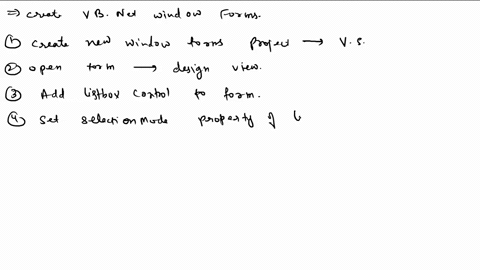 ⇒ Create VB.Net window Forms.
① Create new window forms project → V.S.
② open form → design view.
③ Add listbox control to form.
④ Set selectionMode property of l